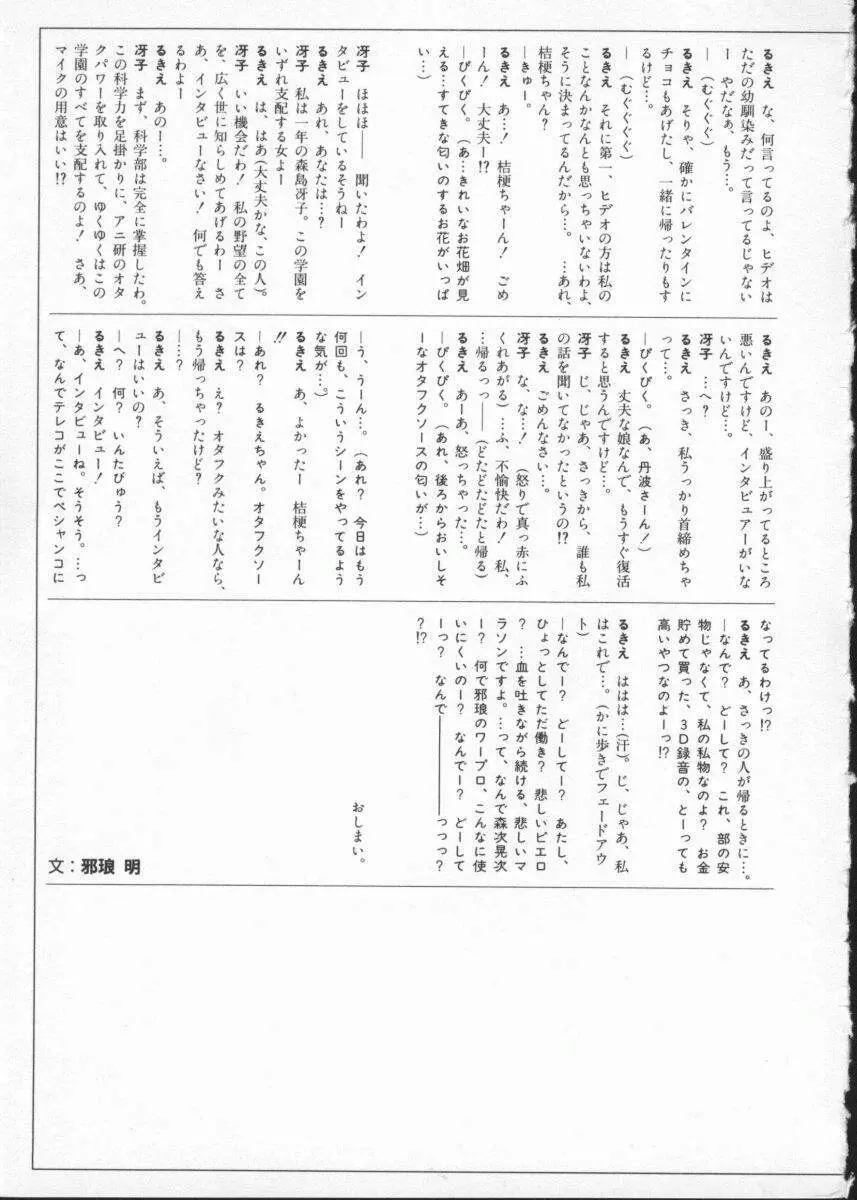 るきえ　な、何言ってるのよ、ヒデオは
ただの幼馴染みだって言ってるじゃない
ー　やだなぁ、もう…。
―（むぐぐぐ）
るきえ　そりゃ、確かにバレンタインに
チョコもあげたし、一緒に帰ったりもす
るけど…。
―（むぐぐぐぐ）
るきえ　それに第一、ヒデオの方は私の
ことなんかなんとも思っちゃいないわよ、
そうに決まってるんだから…。　…あれ、
桔梗ちゃん？
―きゅー。
るきえ　あ…！　桔梗ちゃーん！　ごめ
ーん！　大丈夫ー!?
―ぴくぴく。（あ…きれいなお花畑が見
える…すてきな匂いのするお花がいっぱ
い…）
冴子　ほほほ――　聞いたわよ！　イン
タビューをしているそうねー
るきえ　あれ、あなたは…？
冴子　私は一年の森島冴子。この学園を
いずれ支配する女よー
るきえ　は、はあ（大丈夫かな、この人）。
冴子　いい機会だわ！　私の野望の全て
を、広く世に知らしめてあげるわー　さ
あ、インタビューなさい！　何でも答え
るわよー
るきえ　あのー…。
冴子　まず、科学部は完全に掌握したわ。
この科学力を足掛かりに、アニ研のオタ
クパワーを取り入れて、ゆくゆくはこの
学園のすべてを支配するのよ！　さあ、
マイクの用意はいい!?
るきえ　あのー、盛り上がってるところ
悪いんですけど、インタビュアーがいな
いんですけど…。
冴子　…へ？
るきえ　さっき、私うっかり首締めちゃ
って…。
―ぴくぴく。（あ、丹波さーん！）
るきえ　丈夫な娘なんで、もうすぐ復活
すると思うんですけど…。
冴子　じ、じゃあ、さっきから、誰も私
の話を聞いてなかったというの!?
るきえ　ごめんなさい…。
冴子　な、な…！　（怒りで真っ赤にふ
くれあがる）…ふ、不愉快だわ！　私、
…帰るっっ――（どたどたどたと帰る）
るきえ　あーあ、怒っちゃった…。
―ぴくぴく。（あれ、後ろからおいしそ
ーなオタフクソースの匂いが…）
―う、うーん…。（あれ？　今日はもう
何回も、こういうシーンをやってるよう
な気が…）。
るきえ　あ、よかったー　桔梗ちゃーん
!!
―あれ？　るきえちゃん。オタフクソー
スは？
るきえ　え？　オタフクみたいな人なら、
もう帰っちゃったけど？
―…？
るきえ　あ、そういえば、もうインタビ
ューはいいの？
―へ？　何？　いんたびゅう？
るきえ　インタビュー！
―あ、インタビューね。そうそう。…っ
て、なんでテレコがここでペシャンコに
なってるわけっ!?
るきえ　あ、さっきの人が帰るときに…。
―なんで？　どーして？　これ、部の安
物じゃなくて、私の私物なのよ？　お金
貯めて買った、３Ｄ録音の、とーっても
高いやつなのよーっ!?
るきえ　ははは…（汗）。じ、じゃあ、私
はこれで…。（かに歩きでフェードアウ
ト）
―なんでー？　どーしてー？　あたし、
ひょっとしてただ働き？　悲しいピエロ
？　…血を吐きながら続ける、悲しいマ
ラソンですよ。…って、なんで森次晃次
ー？　何で邪琅のワープロ、こんなに使
いにくいのー？　なんでー？　どーして
ーっ？　なんで――――――っっっ？
?!?
おしまい。
文：邪琅　明